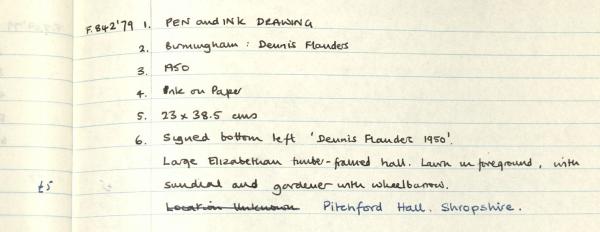 F.842'79 1. PEN and INK DRAWING
2. Birmingham : Dennis Flanders
3. 1950
4. Ink on Paper
5. 23 x 38.5 cms
6. Signed bottom left 'Dennis Flanders 1950'.
Large Elizabethan timber-framed hall. Lawn in foreground, with
£5 sundial and gardener with wheelbarrow.
Location Unknown Pitchford Hall. Shropshire.